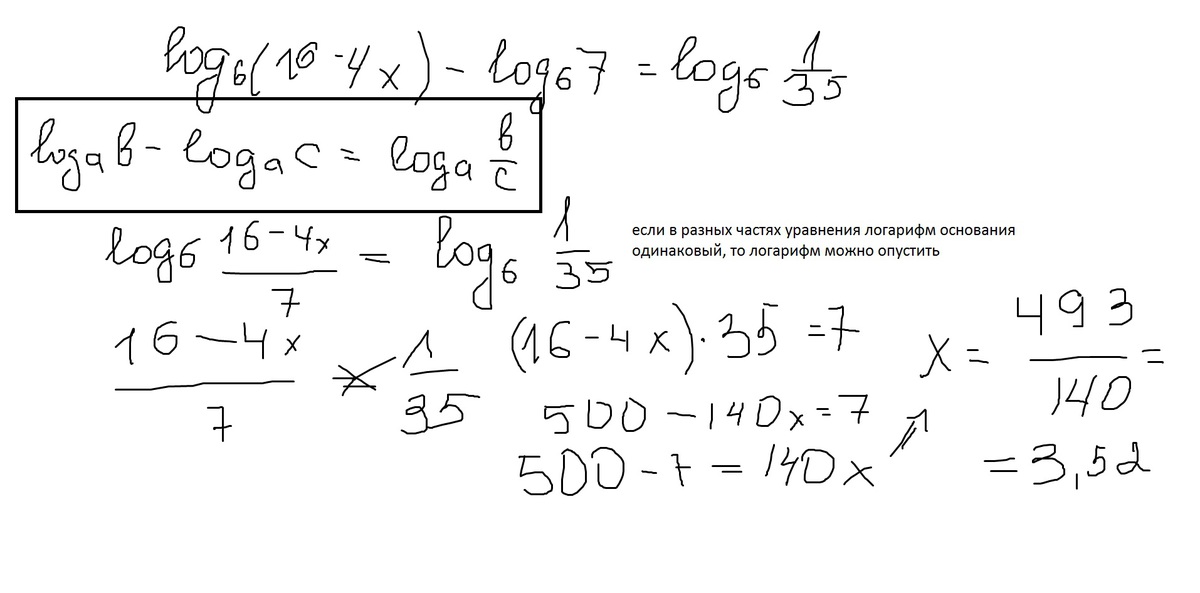 log₆(16-4x) - log₆7 = log₆ 1/35
logₐb - logₐc = logₐ b/c
log₆ (16-4x)/7 = log₆ 1/35
если в разных частях уравнения логарифм основания
одинаковый, то логарифм можно опустить
(16-4x)/7 = 1/35
(16-4x)·35 =7
500-140x=7
500-7=140x
x = 493/140 =
=3,52